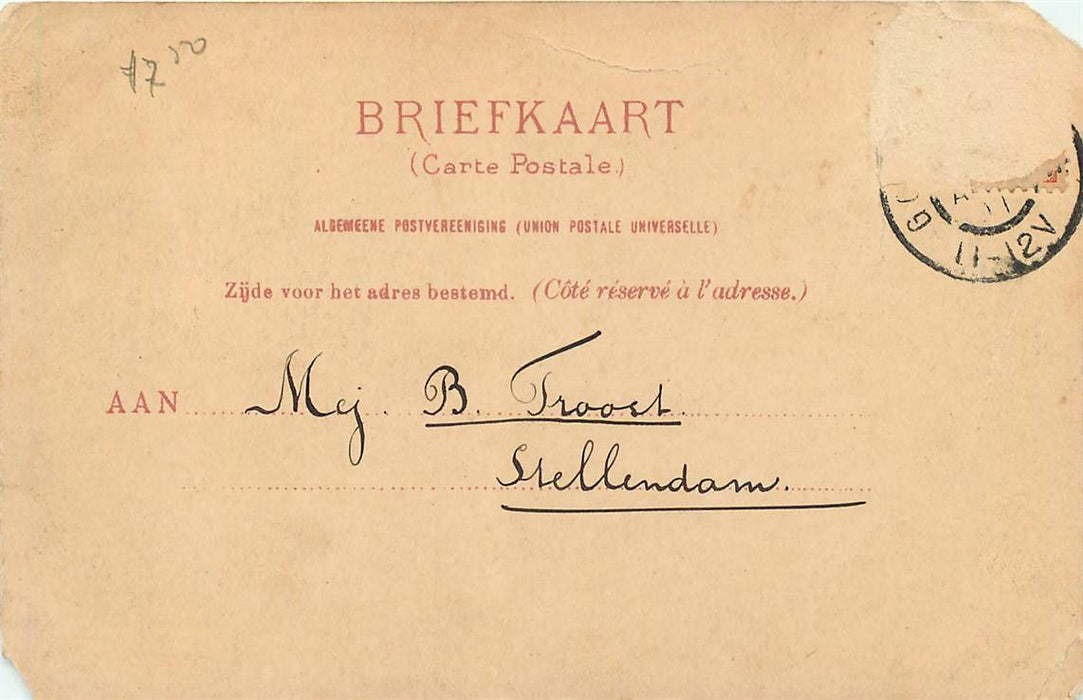 BRIEFKAART
(Carte Postale.)
ALGEMEENE POSTVEREENIGING (UNION POSTALE UNIVERSELLE)
Zijde voor het adres bestemd. (Côté réservé à l'adresse.)
AAN Mej. B. Troost.
Stellendam.
11-12V